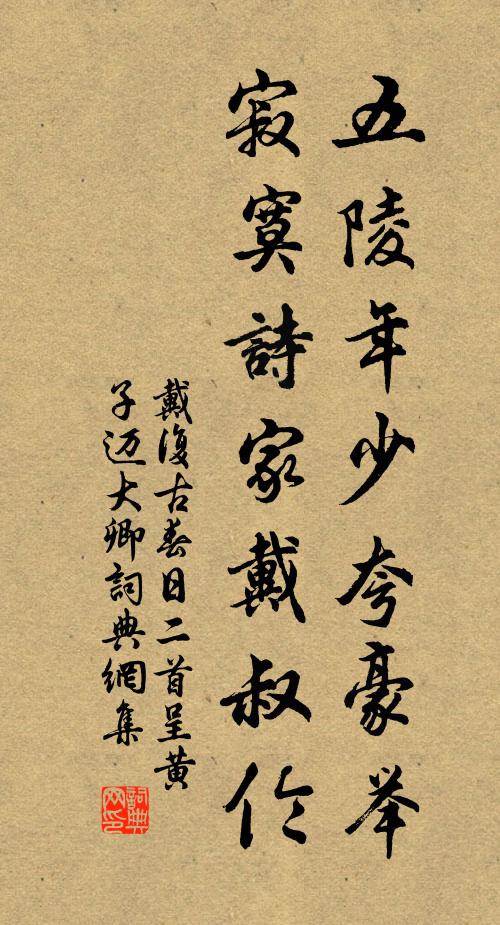 五陵年少夸豪举
寂寞詩家戴叔伦
戴復古春日二首呈黄
子迈大卿詞典網集
詞典网印